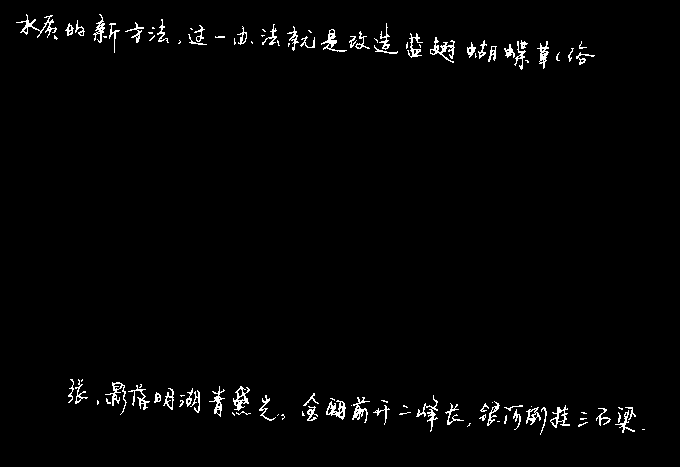 水质的新方法,这一办法就是改造蓝翅蝴蝶草(俗
张,影落明湖青黛光。金阙前开二峰长,银河倒挂三石梁.